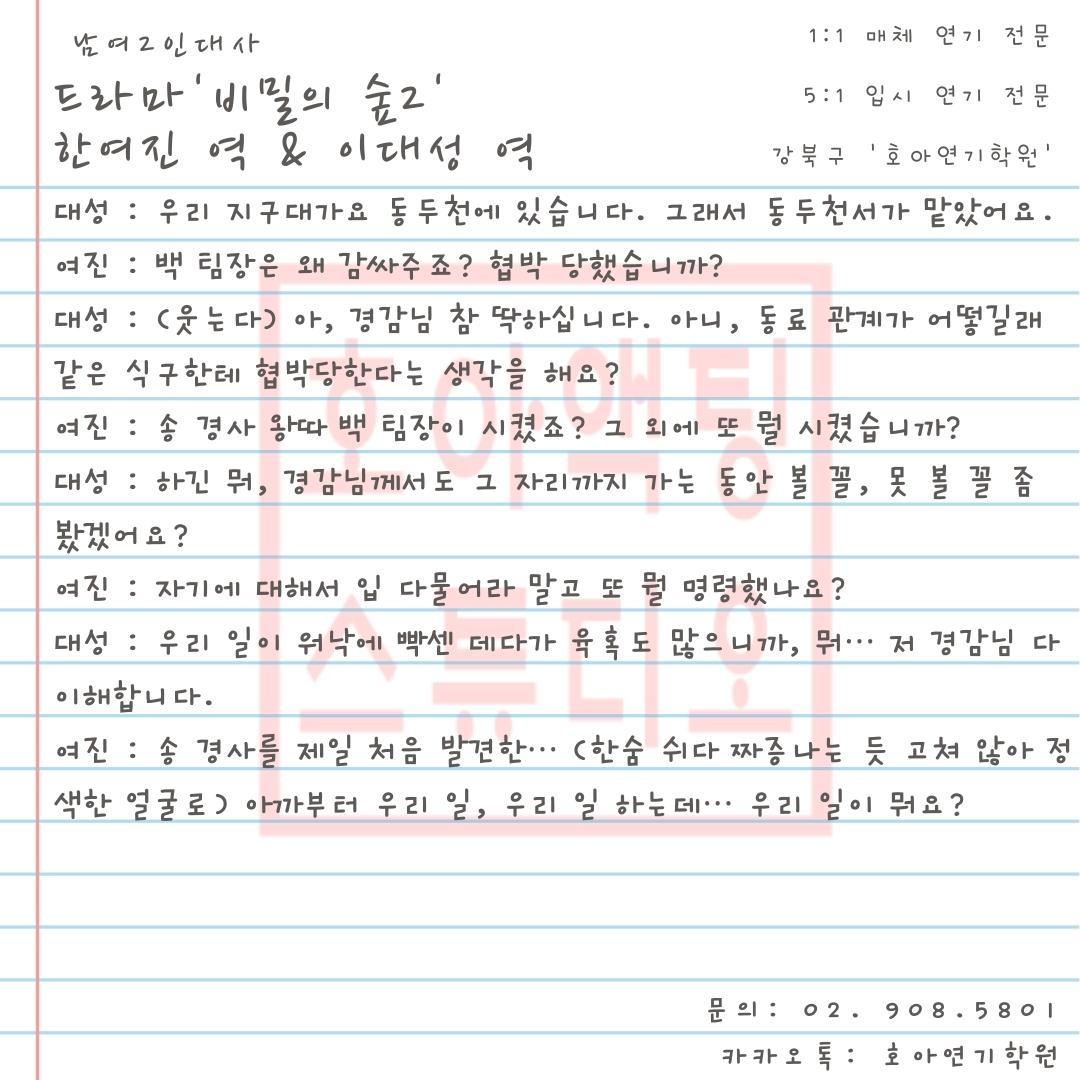 남여2인대사
드라마'비밀의 숲2'
한여진 역 & 이대성 역
1:1 매체 연기 전문
5:1 입시 연기 전문
강북구 '호아연기학원'
대성 : 우리 지구대가요 동두천에 있습니다. 그래서 동두천서가 맡았어요.
여진 : 백 팀장은 왜 감싸주죠? 협박 당했습니까?
대성 : (웃는다) 아, 경감님 참 딱하십니다. 아니, 동료 관계가 어떻길래
같은 식구한테 협박당한다는 생각을 해요?
여진 : 송 경사 왕따 백 팀장이 시켰죠? 그 외에 또 뭘 시켰습니까?
대성 : 하긴 뭐, 경감님께서도 그 자리까지 가는 동안 볼 꼴, 못 볼 꼴 좀
봤겠어요?
여진 : 자기에 대해서 입 다물어라 말고 또 뭘 명령했나요?
대성 : 우리 일이 워낙에 빡센 데다가 육혹도 많으니까, 뭐… 저 경감님 다
이해합니다.
여진 : 송 경사를 제일 처음 발견한… (한숨 쉬다 짜증나는 듯 고쳐 앉아 정
색한 얼굴로) 아까부터 우리 일, 우리 일 하는데… 우리 일이 뭐요?
호아액팅
스튜디오
문의: 02. 908.5801
카카오톡: 호아연기학원